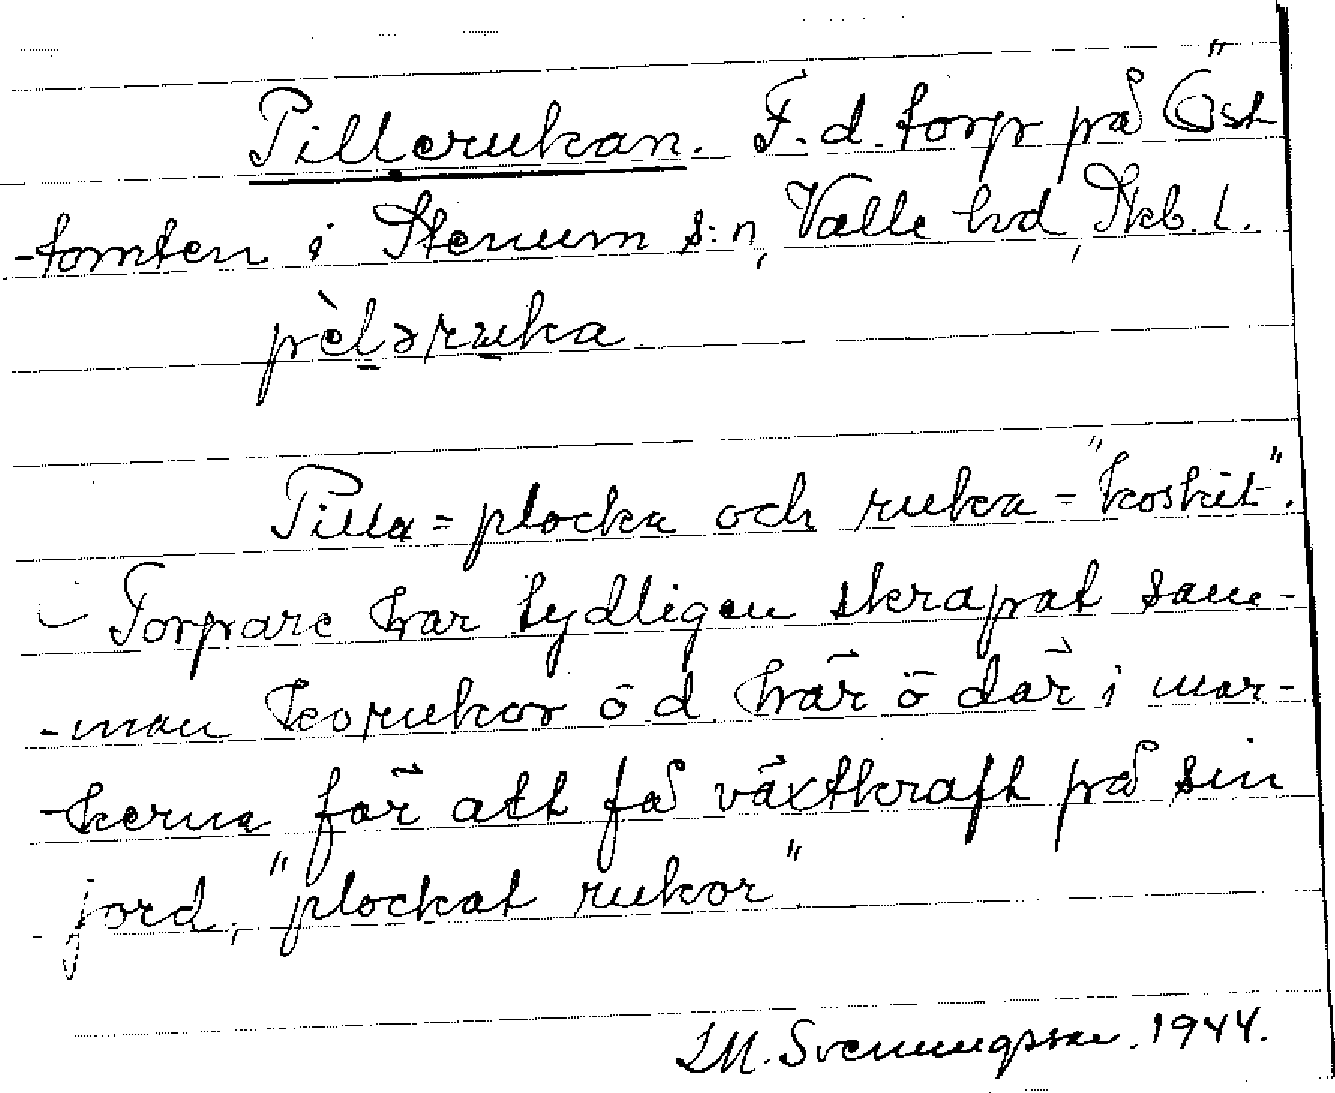 Pillerukan. F.d. torp på Öst
-tomten i Stenum s:n, Valle hd, Skb. l.
pèləruka
Pilla = plocka och ruka = "koskit".
- Torpare har tydligen skrapat sam-
-man korukor ö d här ö där i mar-
-kerna för att få växtkraft på sin
jord, "plockat rukor"
LM. Svenungsson. 1944.